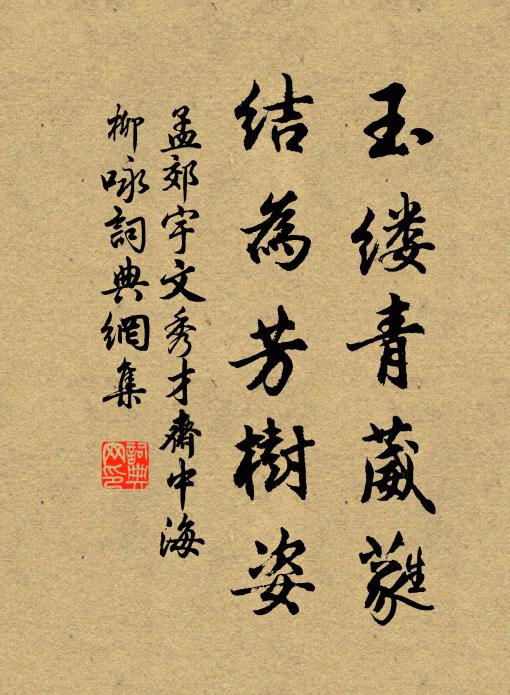 玉缕青葳蕤
结為芳樹姿
孟郊宇文秀才齋中海
柳咏詞典網集
詞典网印